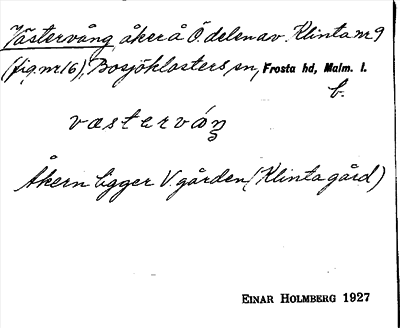 Västervång, åker å Ö. delen av Klinta nr 9
(fig. nr 16), Bosjöklosters sn, Frosta hd, Malm. l.
b.
vastarvåŋ
Åkern ligger V. gården (Klinta gård)
EINAR HOLMBERG 1927